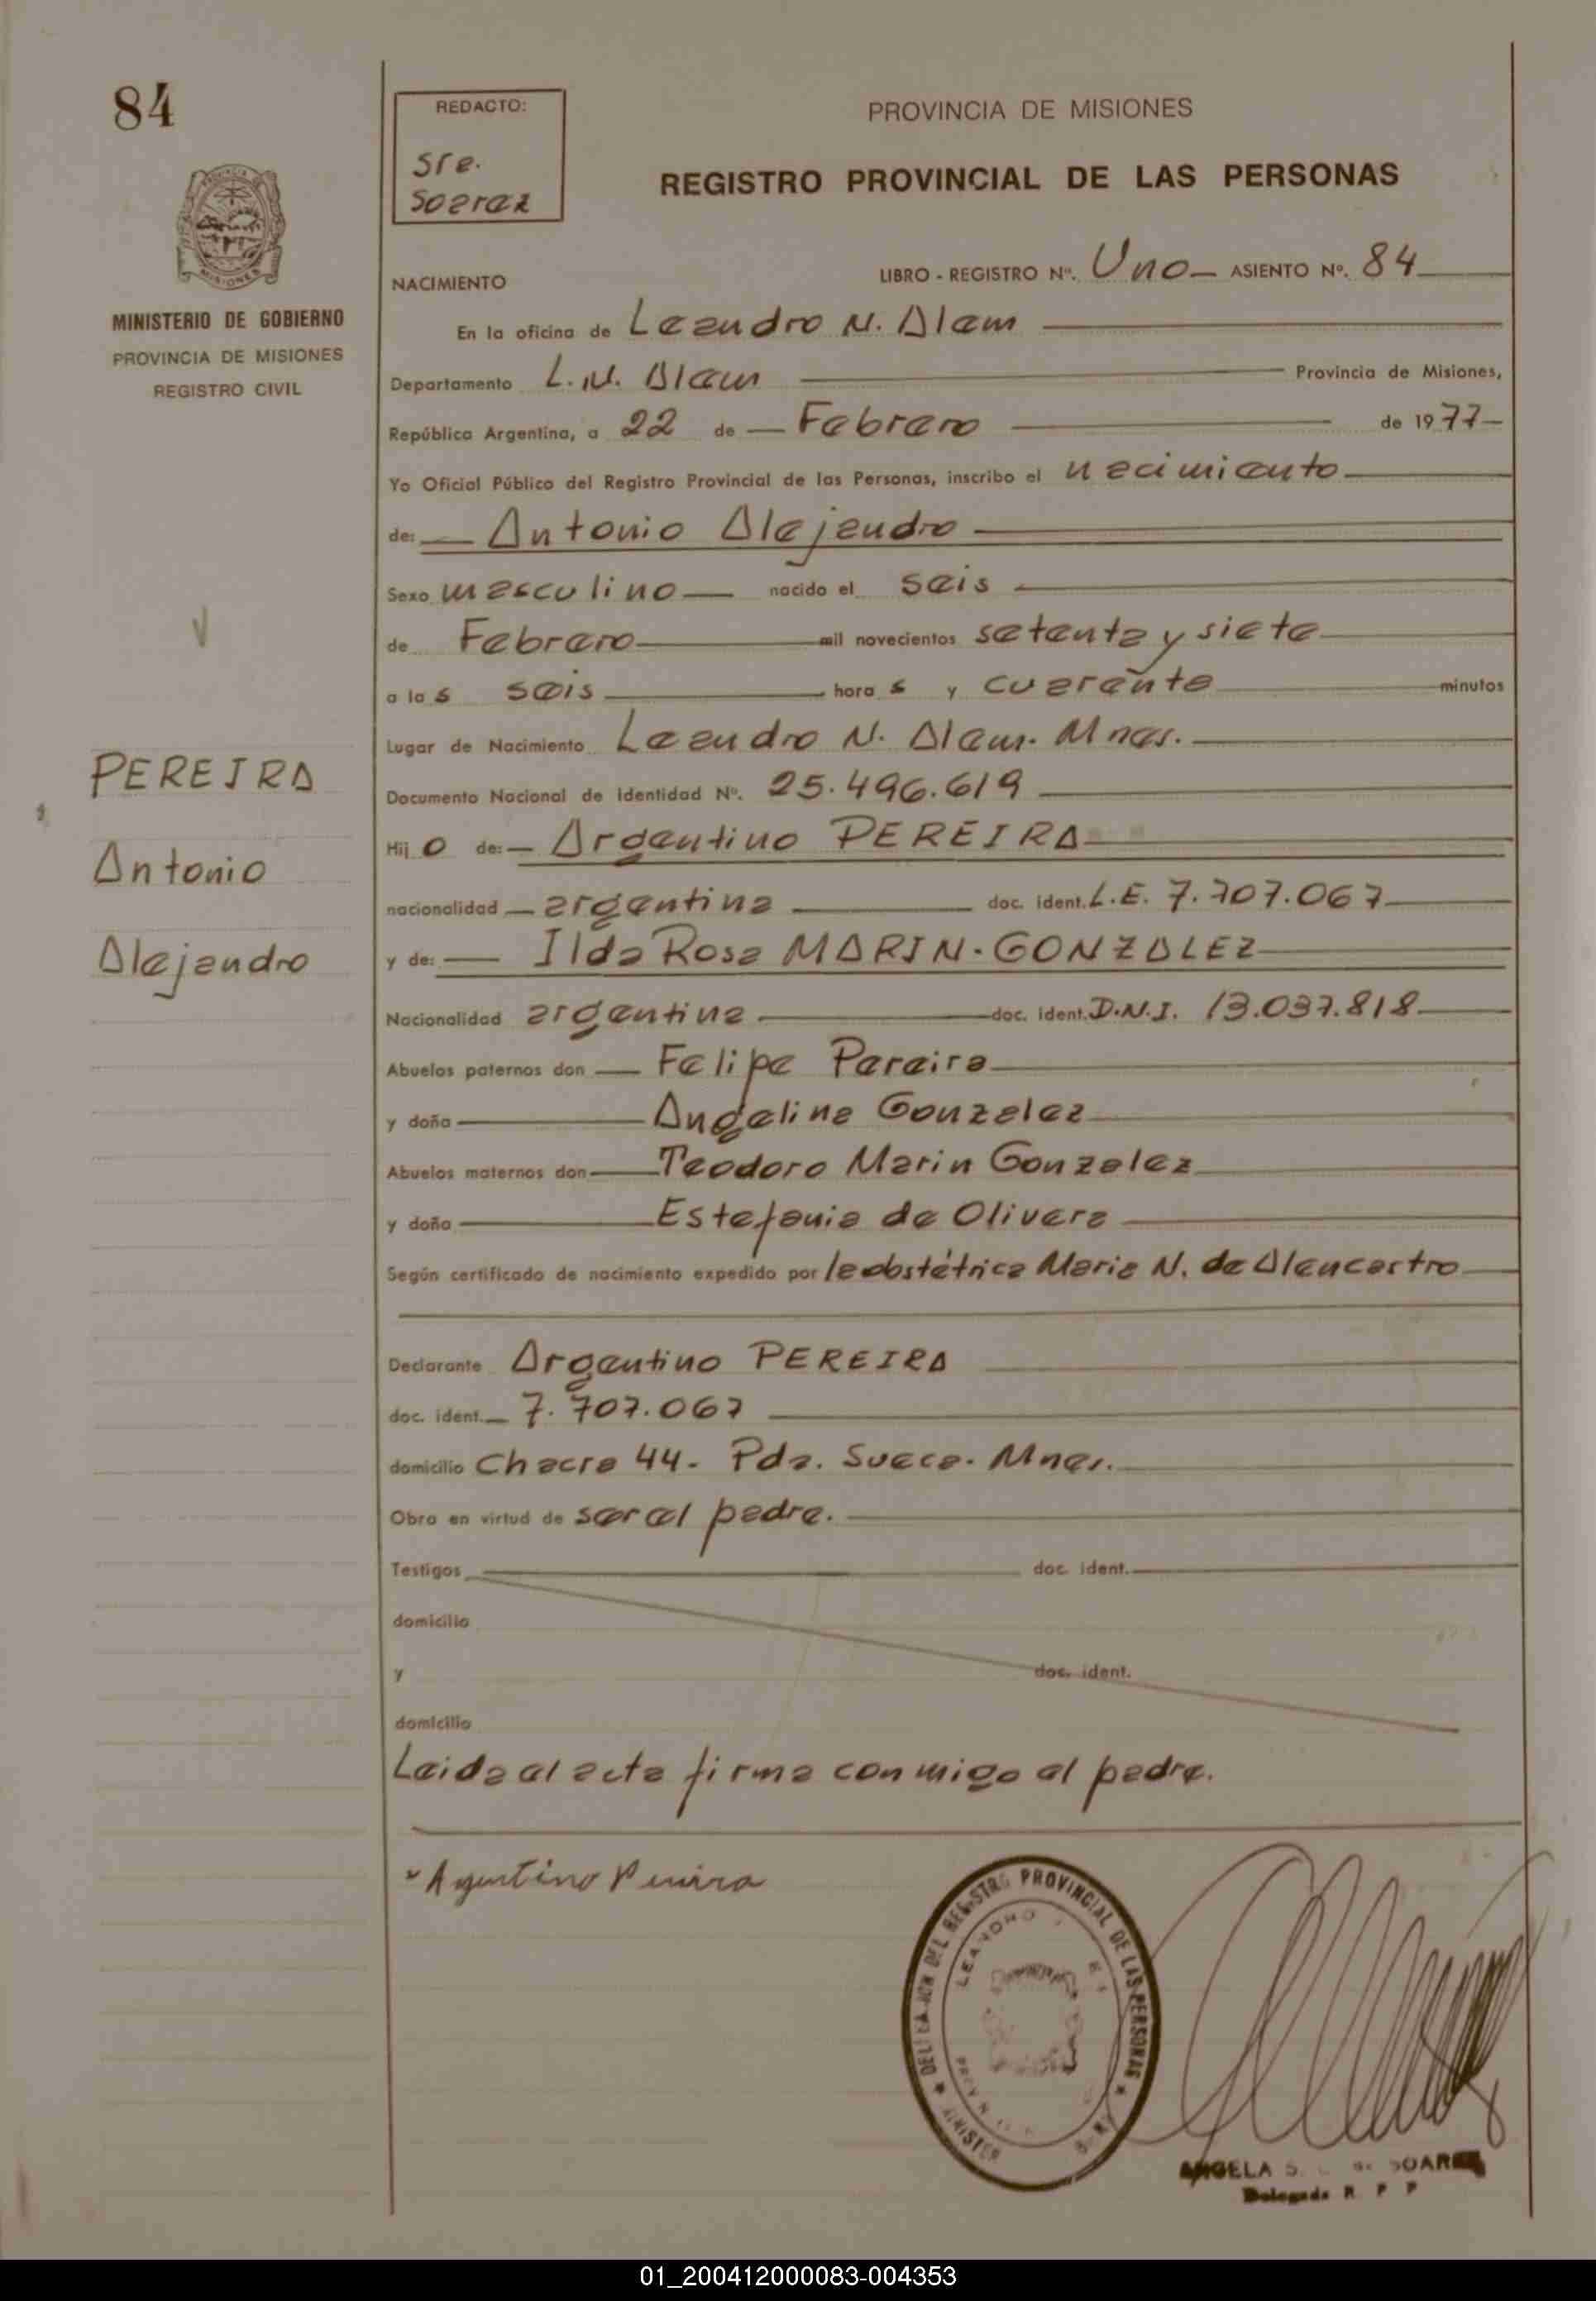 84
REDACTO:
Sra.
Soarez
PROVINCIA DE MISIONES
REGISTRO PROVINCIAL DE LAS PERSONAS
MINISTERIO DE GOBIERNO
PROVINCIA DE MISIONES
REGISTRO CIVIL
NACIMIENTO
LIBRO - REGISTRO Nº. Uno ASIENTO Nº. 84
En la oficina de Leandro N. Alem
Departamento L.N. Alem Provincia de Misiones,
República Argentina, a 22 de Febrero de 1977
Yo Oficial Público del Registro Provincial de las Personas, inscribo el nacimiento
de: Antonio Alejandro
Sexo masculino nacido el seis
de Febrero mil novecientos setenta y siete
a las seis horas y cuarenta minutos
Lugar de Nacimiento Leandro N. Alem. Mnes.
Documento Nacional de Identidad Nº. 25.496.619
Hijo de: Argentino PEREIRA
nacionalidad argentina doc. ident. L.E. 7.707.067
y de: Ilda Rosa MARIN-GONZALEZ
Nacionalidad argentina doc. ident. D.N.I. 13.037.818
Abuelos paternos don Felipe Pereira
y doña Angelina Gonzalez
Abuelos maternos don Teodoro Marin Gonzalez
y doña Estefania de Olivera
Según certificado de nacimiento expedido por la obstétrica Maria N. de Alencastro
Declarante Argentino PEREIRA
doc. ident. 7.707.067
domicilio Chacra 44- Pda. Sueca. Mnes.
Obra en virtud de ser el padre.
Testigos doc. ident.
domicilio
y doc. ident.
domicilio
Leida el acta firma conmigo el padre.
PEREIRA
Antonio
Alejandro
Argentino Pereira
DEL REGISTRO PROVINCIAL DE LAS PERSONAS
LEANDRO
ANGELA S. SOAREZ
Delegada R P P
01_200412000083-004353